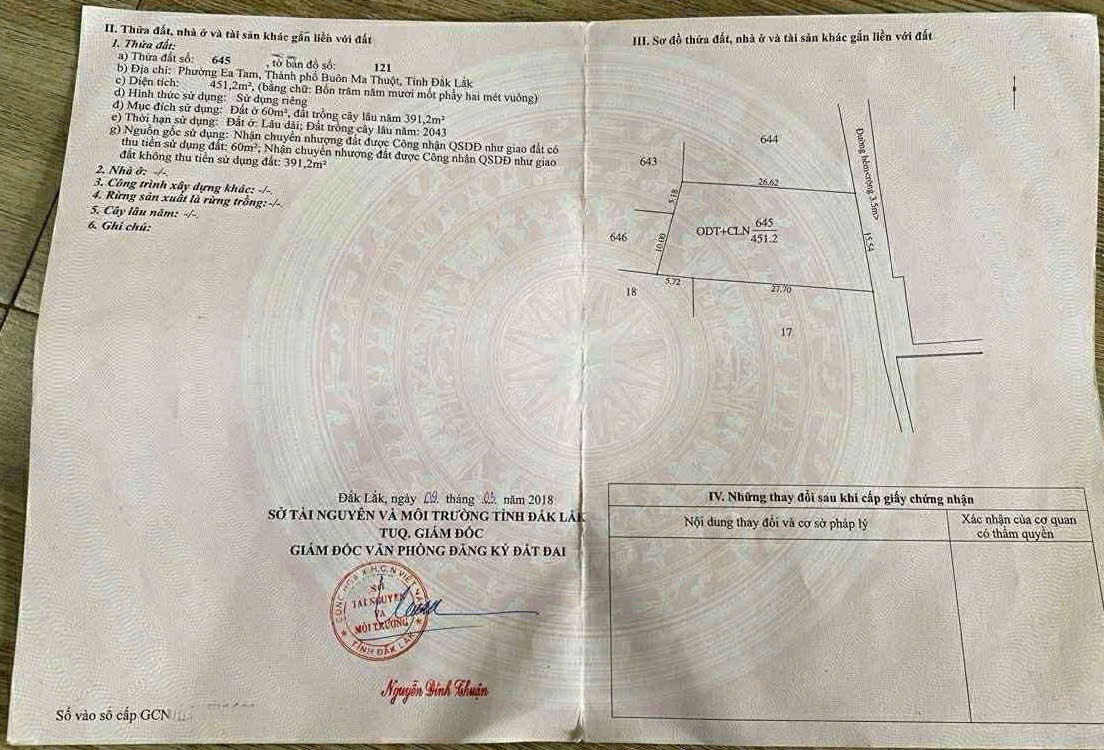 II. Thửa đất, nhà ở và tài sản khác gắn liền với đất
1. Thửa đất:
a) Thửa đất số: 645 , tờ bản đồ số: 121
b) Địa chỉ: Phường Ea Tam, Thành phố Buôn Ma Thuột, Tỉnh Đắk Lắk
c) Diện tích: 451,2m², (bằng chữ: Bốn trăm năm mươi mốt phẩy hai mét vuông)
d) Hình thức sử dụng: Sử dụng riêng
đ) Mục đích sử dụng: Đất ở 60m², đất trồng cây lâu năm 391,2m²
e) Thời hạn sử dụng: Đất ở: Lâu dài; Đất trồng cây lâu năm: 2043
g) Nguồn gốc sử dụng: Nhận chuyển nhượng đất được Công nhận QSDĐ như giao đất có
thu tiền sử dụng đất: 60m²; Nhận chuyển nhượng đất được Công nhận QSDĐ như giao
đất không thu tiền sử dụng đất: 391,2m²
2. Nhà ở: -/-.
3. Công trình xây dựng khác: -/-.
4. Rừng sản xuất là rừng trồng: -/-.
5. Cây lâu năm: -/-.
6. Ghi chú:
Đắk Lắk, ngày 09 tháng 05 năm 2018
SỞ TÀI NGUYÊN VÀ MÔI TRƯỜNG TỈNH ĐẮK LẮK
TUQ. GIÁM ĐỐC
GIÁM ĐỐC VĂN PHÒNG ĐĂNG KÝ ĐẤT ĐAI
CỘNG HÒA X.H.C.N VIỆT NAM
SỞ
TÀI NGUYÊN
VÀ
MÔI TRƯỜNG
TỈNH ĐẮK LẮK
Nguyễn Đình Thuận
Số vào sổ cấp GCN
III. Sơ đồ thửa đất, nhà ở và tài sản khác gắn liền với đất
644
643
Đường hẻm<rộng 3.5m>
26.62
5.18
645
ODT+CLN
451.2
646
10.00
15.54
5.72
27.70
18
17
IV. Những thay đổi sau khi cấp giấy chứng nhận
Nội dung thay đổi và cơ sở pháp lý
Xác nhận của cơ quan
có thẩm quyền